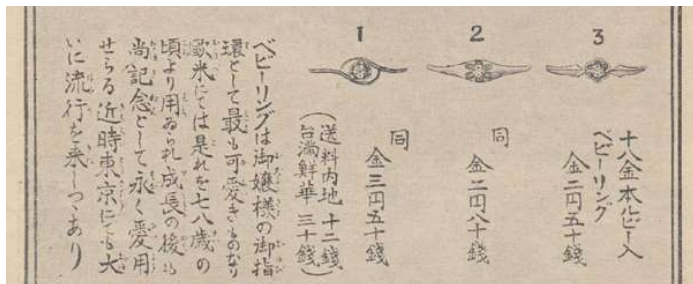 3
十八金本ルビー入
ベビーリング
金二円五十錢
2
同
金二円八十錢
1
同
金三円五十錢
(送料内地 十二錢
台灣鮮華 三十錢)
ベビーリングは御嬢様の御指
環として最も可愛きものなり
歐米にては是れを七八歳の
頃より用ゐられ成長の後も
尚記念として永く愛用
せらる近時東京にても大
いに流行を来しつゝあり